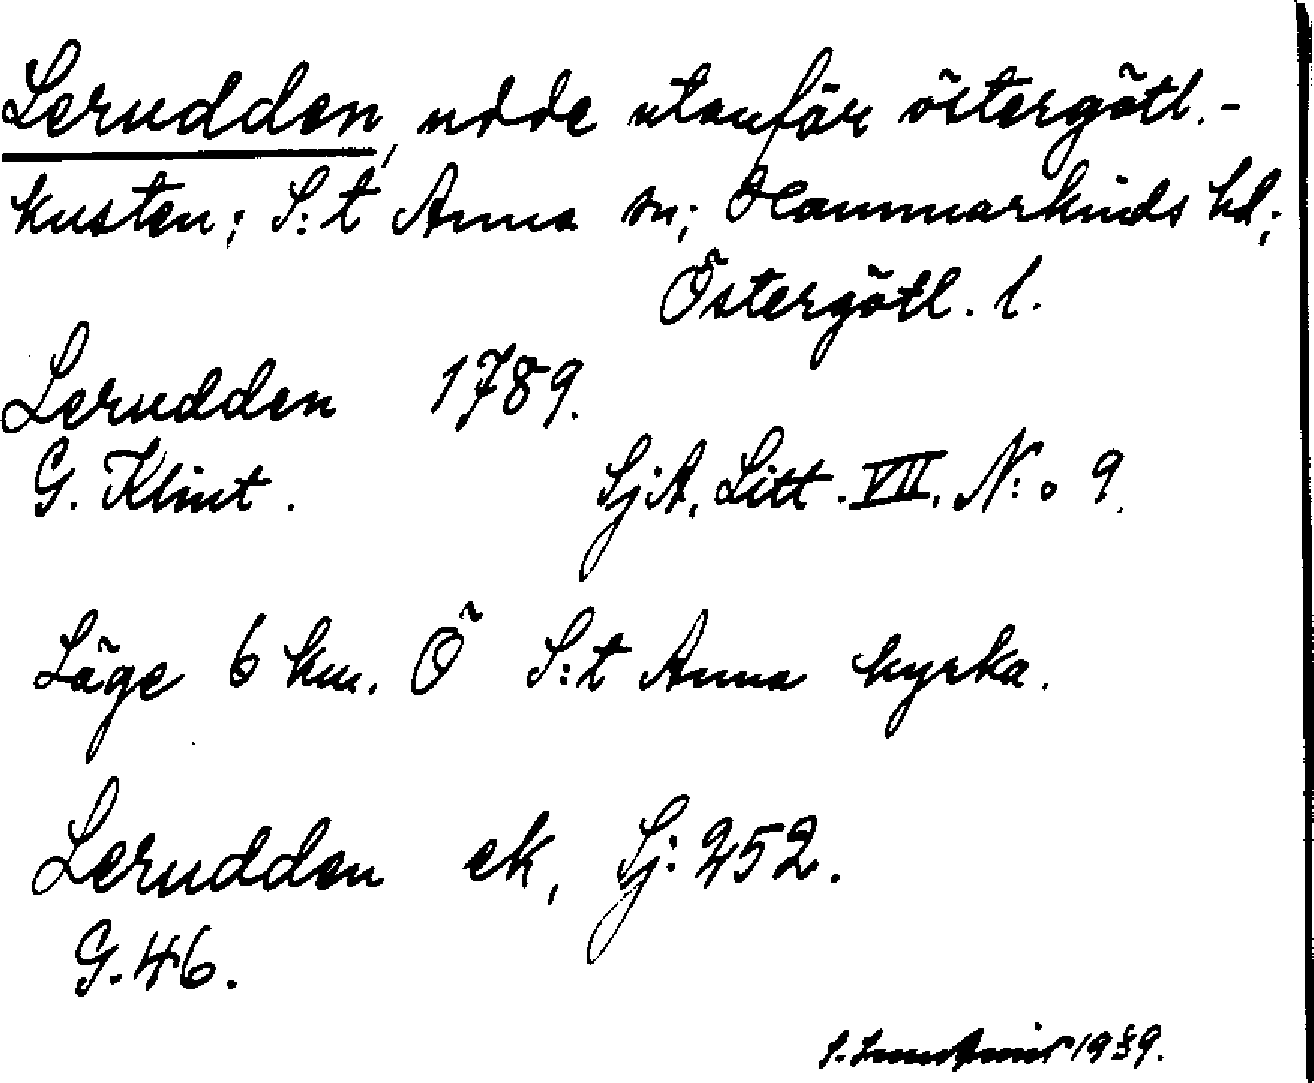 Lerudden, udde utanför östergötl.-
kusten; S:t Anna sn; Hammarkinds hd;
Östergötl. l.
Lerudden 1789.
G. Klint. SjA, Litt. VII. N:o 9.
Läge 6 km. Ö S:t Anna kyrka.
Lerudden ek, Sj: 252.
G. 46.
1939.